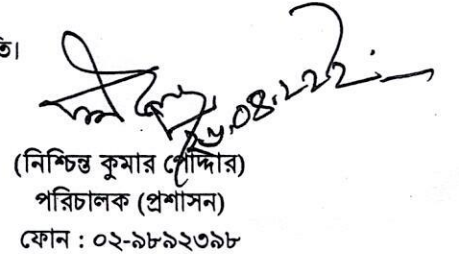 তি।
(নিশ্চিন্ত কুমার পোদ্দার)
পরিচালক (প্রশাসন)
ফোন : ০২-৯৮৯২৩৯৮